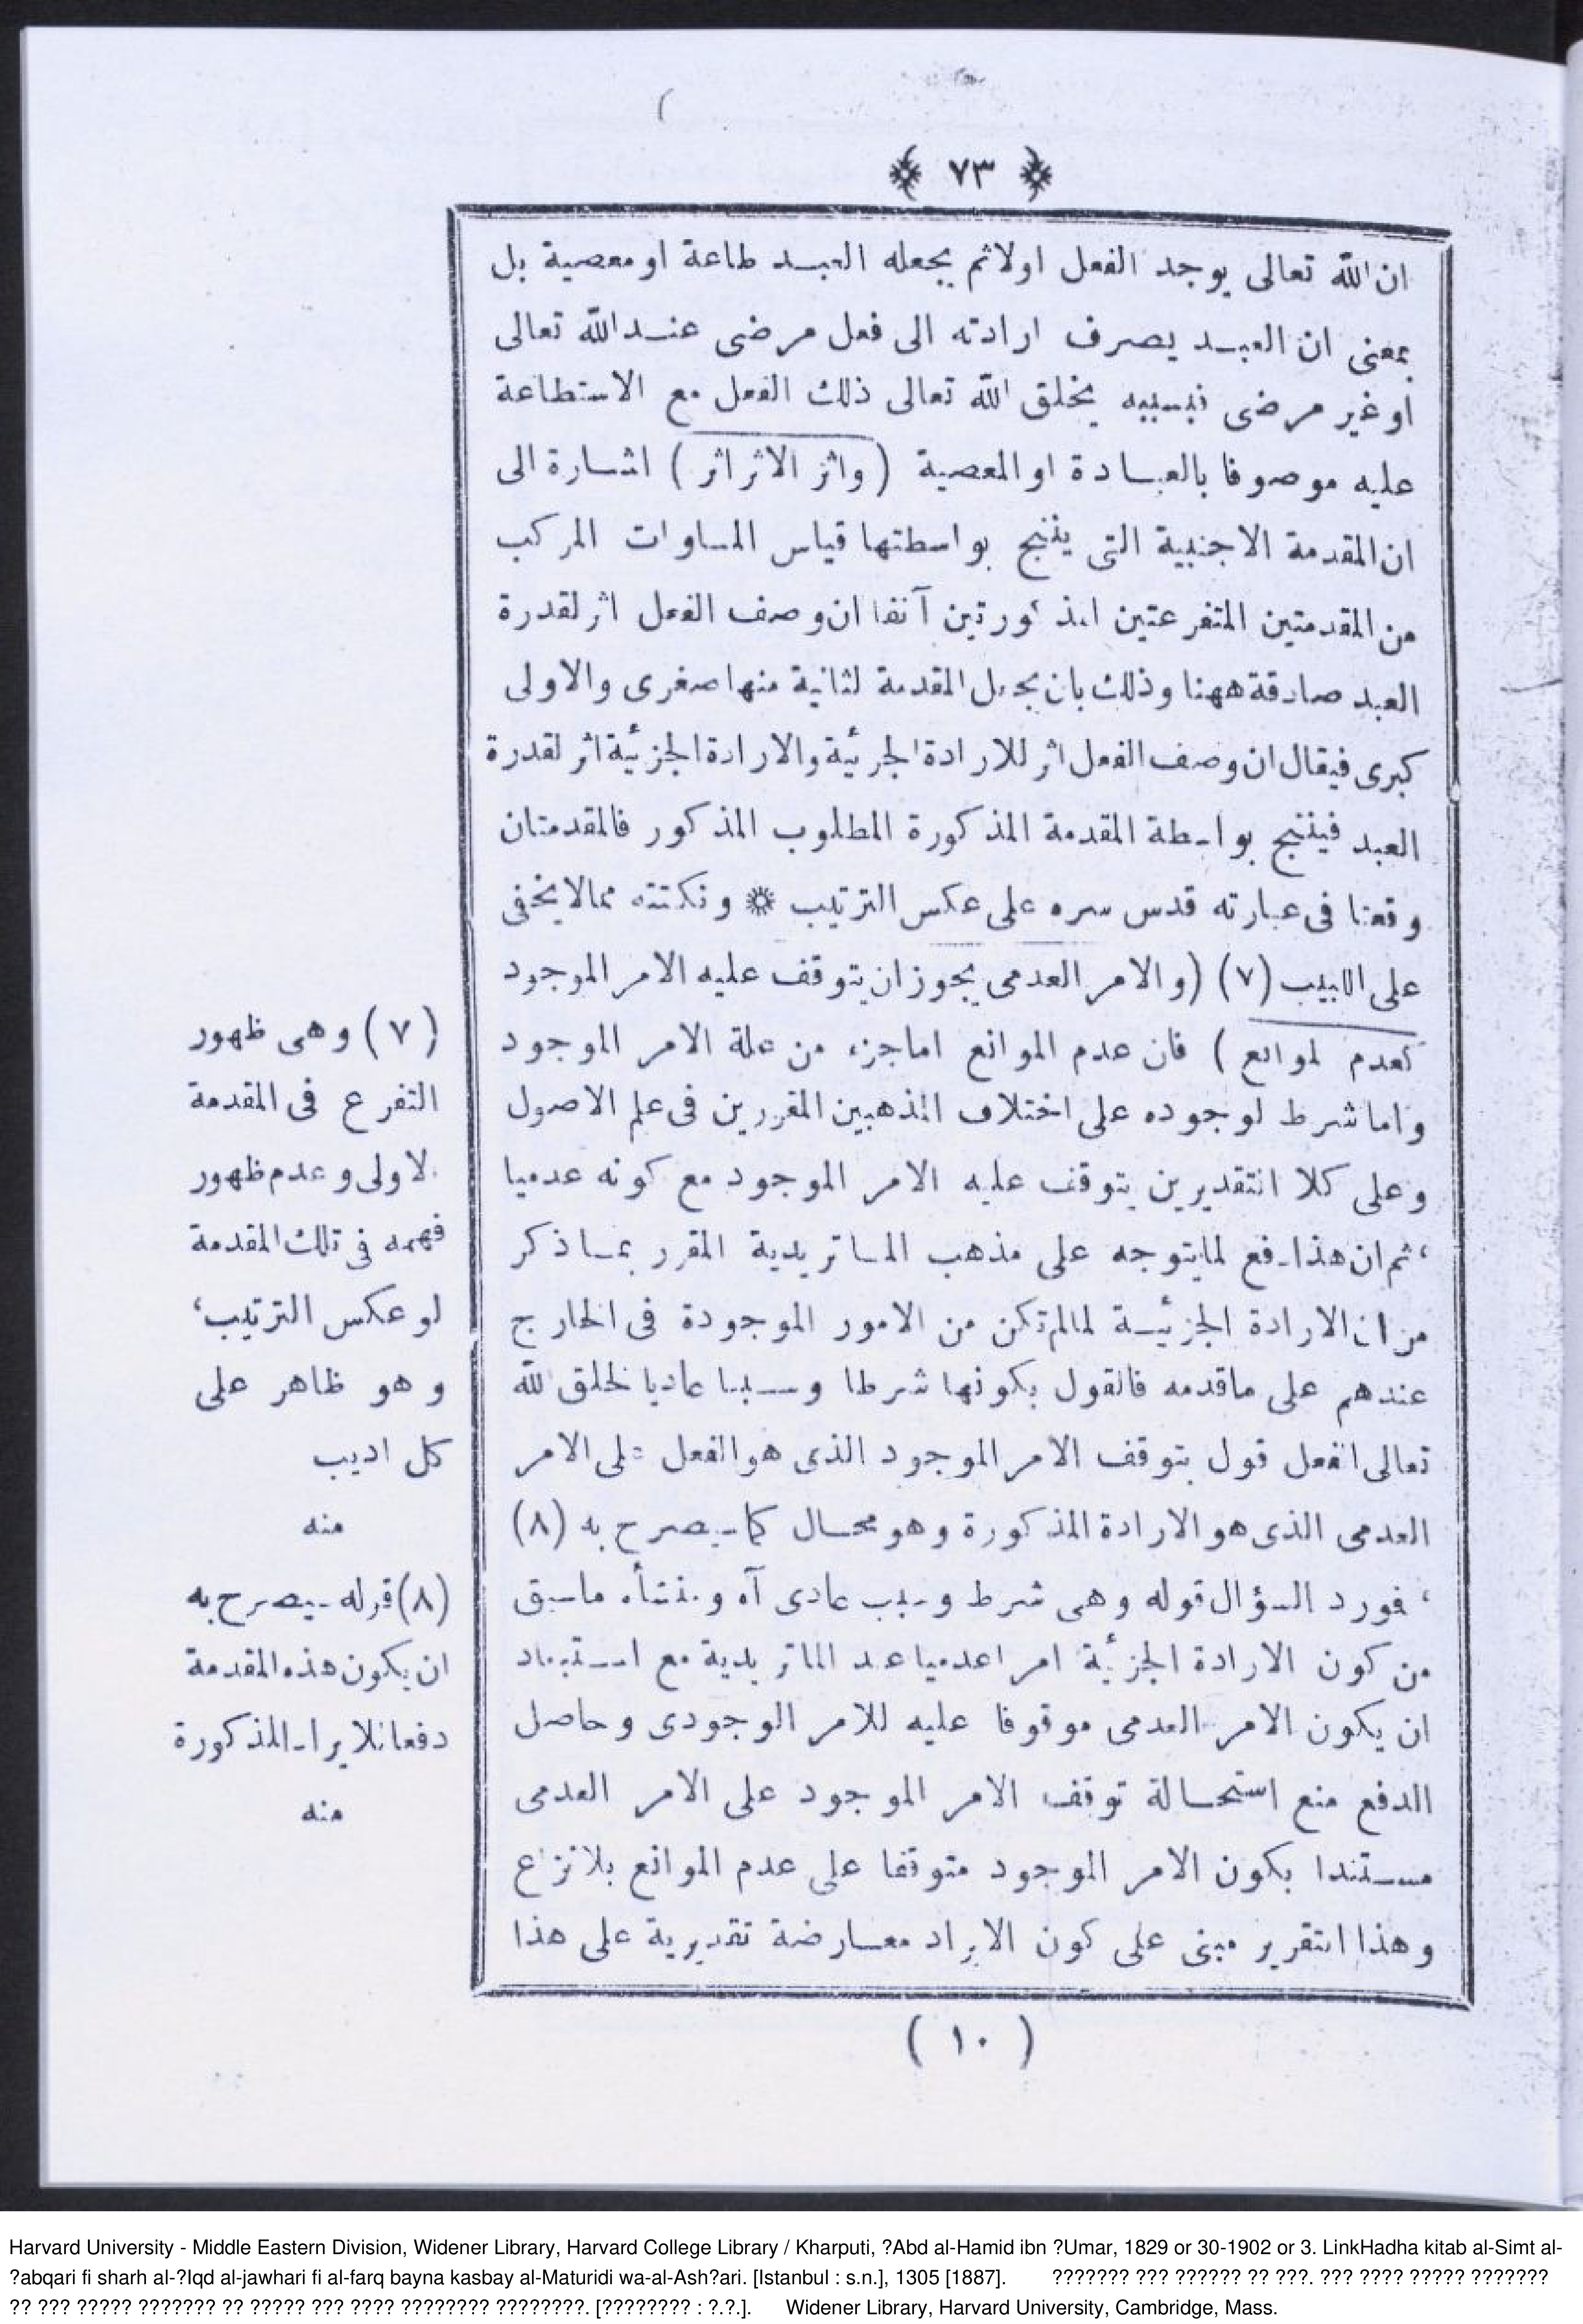 ﴿ ٧٣ ﴾
ان الله تعالى يوجد الفعل اولا ثم يجعله العبد طاعة او معصية بل
بمعنى ان العبد يصرف ارادته الى فعل مرضى عند الله تعالى
او غير مرضى فبسببه يخلق الله تعالى ذلك الفعل مع الاستطاعة
عليه موصوفا بالعبادة او المعصية (واثر الاثر اثر) اشارة الى
ان المقدمة الاجنبية التى ينتج بواسطتها قياس المساوات المركب
من المقدمتين المتفرعتين المذكورتين آنفا ان وصف الفعل اثر لقدرة
العبد صادقة ههنا وذلك بان يجعل المقدمة الثانية منها صغرى والاولى
كبرى فيقال ان وصف الفعل اثر للارادة الجزئية والارادة الجزئية اثر لقدرة
العبد فينتج بواسطة المقدمة المذكورة المطلوب المذكور فالمقدمتان
وقعتا فى عبارته قدس سره على عكس الترتيب * ونكتته مما لا يخفى
على اللبيب (٧) (والامر العدمى يجوز ان يتوقف عليه الامر الموجود
كعدم الموانع) فان عدم الموانع اما جزء من علة الامر الموجود
واما شرط لوجوده على اختلاف المذهبين المقررين فى علم الاصول
وعلى كلا التقديرين يتوقف عليه الامر الموجود مع كونه عدميا
، ثم ان هذا دفع لما يتوجه على مذهب الماتريدية المقرر بما ذكر
من ان الارادة الجزئية لما لم تكن من الامور الموجودة فى الخارج
عندهم على ما قدمه فالقول بكونها شرطا وسببا عاديا لخلق الله
تعالى الفعل قول بتوقف الامر الموجود الذى هو الفعل على الامر
العدمى الذى هو الارادة المذكورة وهو محال كما سيصرح به (٨)
، فورد السؤال قوله وهى شرط وسبب عادى آه ومنشأه ما سبق
من كون الارادة الجزئية امرا عدميا عند الماتريدية مع استبعاد
ان يكون الامر العدمى موقوفا عليه للامر الوجودى وحاصل
الدفع منع استحالة توقف الامر الموجود على الامر العدمى
مستندا بكون الامر الموجود متوقفا على عدم الموانع بلا نزاع
وهذا التقرير مبنى على كون الايراد معارضة تقديرية على هذا
(٧) وهى ظهور
التفرع فى المقدمة
الاولى وعدم ظهور
فهمه فى تلك المقدمة
لو عكس الترتيب،
وهو ظاهر على
كل اديب
منه
(٨) قوله سيصرح به
ان يكون هذه المقدمة
دفعا للايراد المذكورة
منه
(١٠)
Harvard University - Middle Eastern Division, Widener Library, Harvard College Library / Kharputi, ?Abd al-Hamid ibn ?Umar, 1829 or 30-1902 or 3. LinkHadha kitab al-Simt al-
?abqari fi sharh al-?Iqd al-jawhari fi al-farq bayna kasbay al-Maturidi wa-al-Ash?ari. [Istanbul : s.n.], 1305 [1887]. ??????? ??? ?????? ?? ???. ??? ???? ????? ???????
?? ??? ????? ??????? ?? ????? ??? ???? ???????? ????????. [???????? : ?.?.]. Widener Library, Harvard University, Cambridge, Mass.